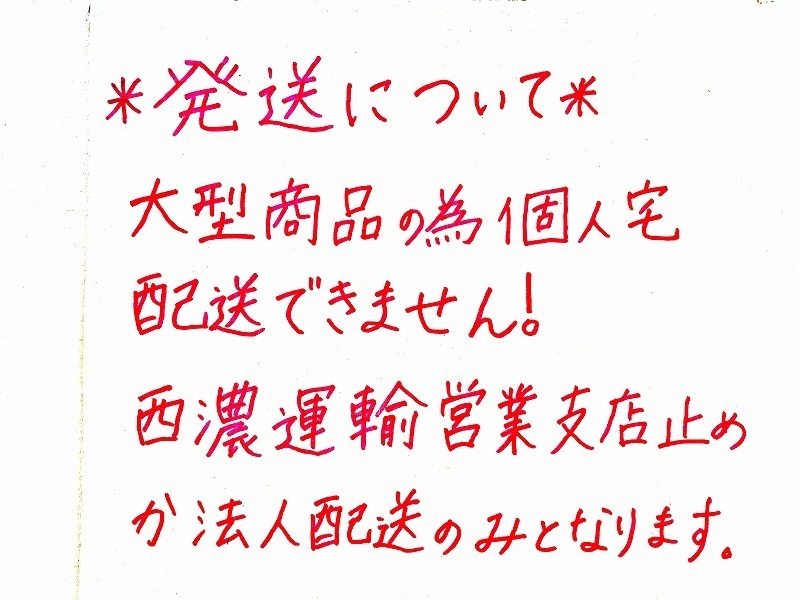 *発送について*
大型商品の為個人宅
配送できません!
西濃運輸営業支店止め
か法人配送のみとなります。